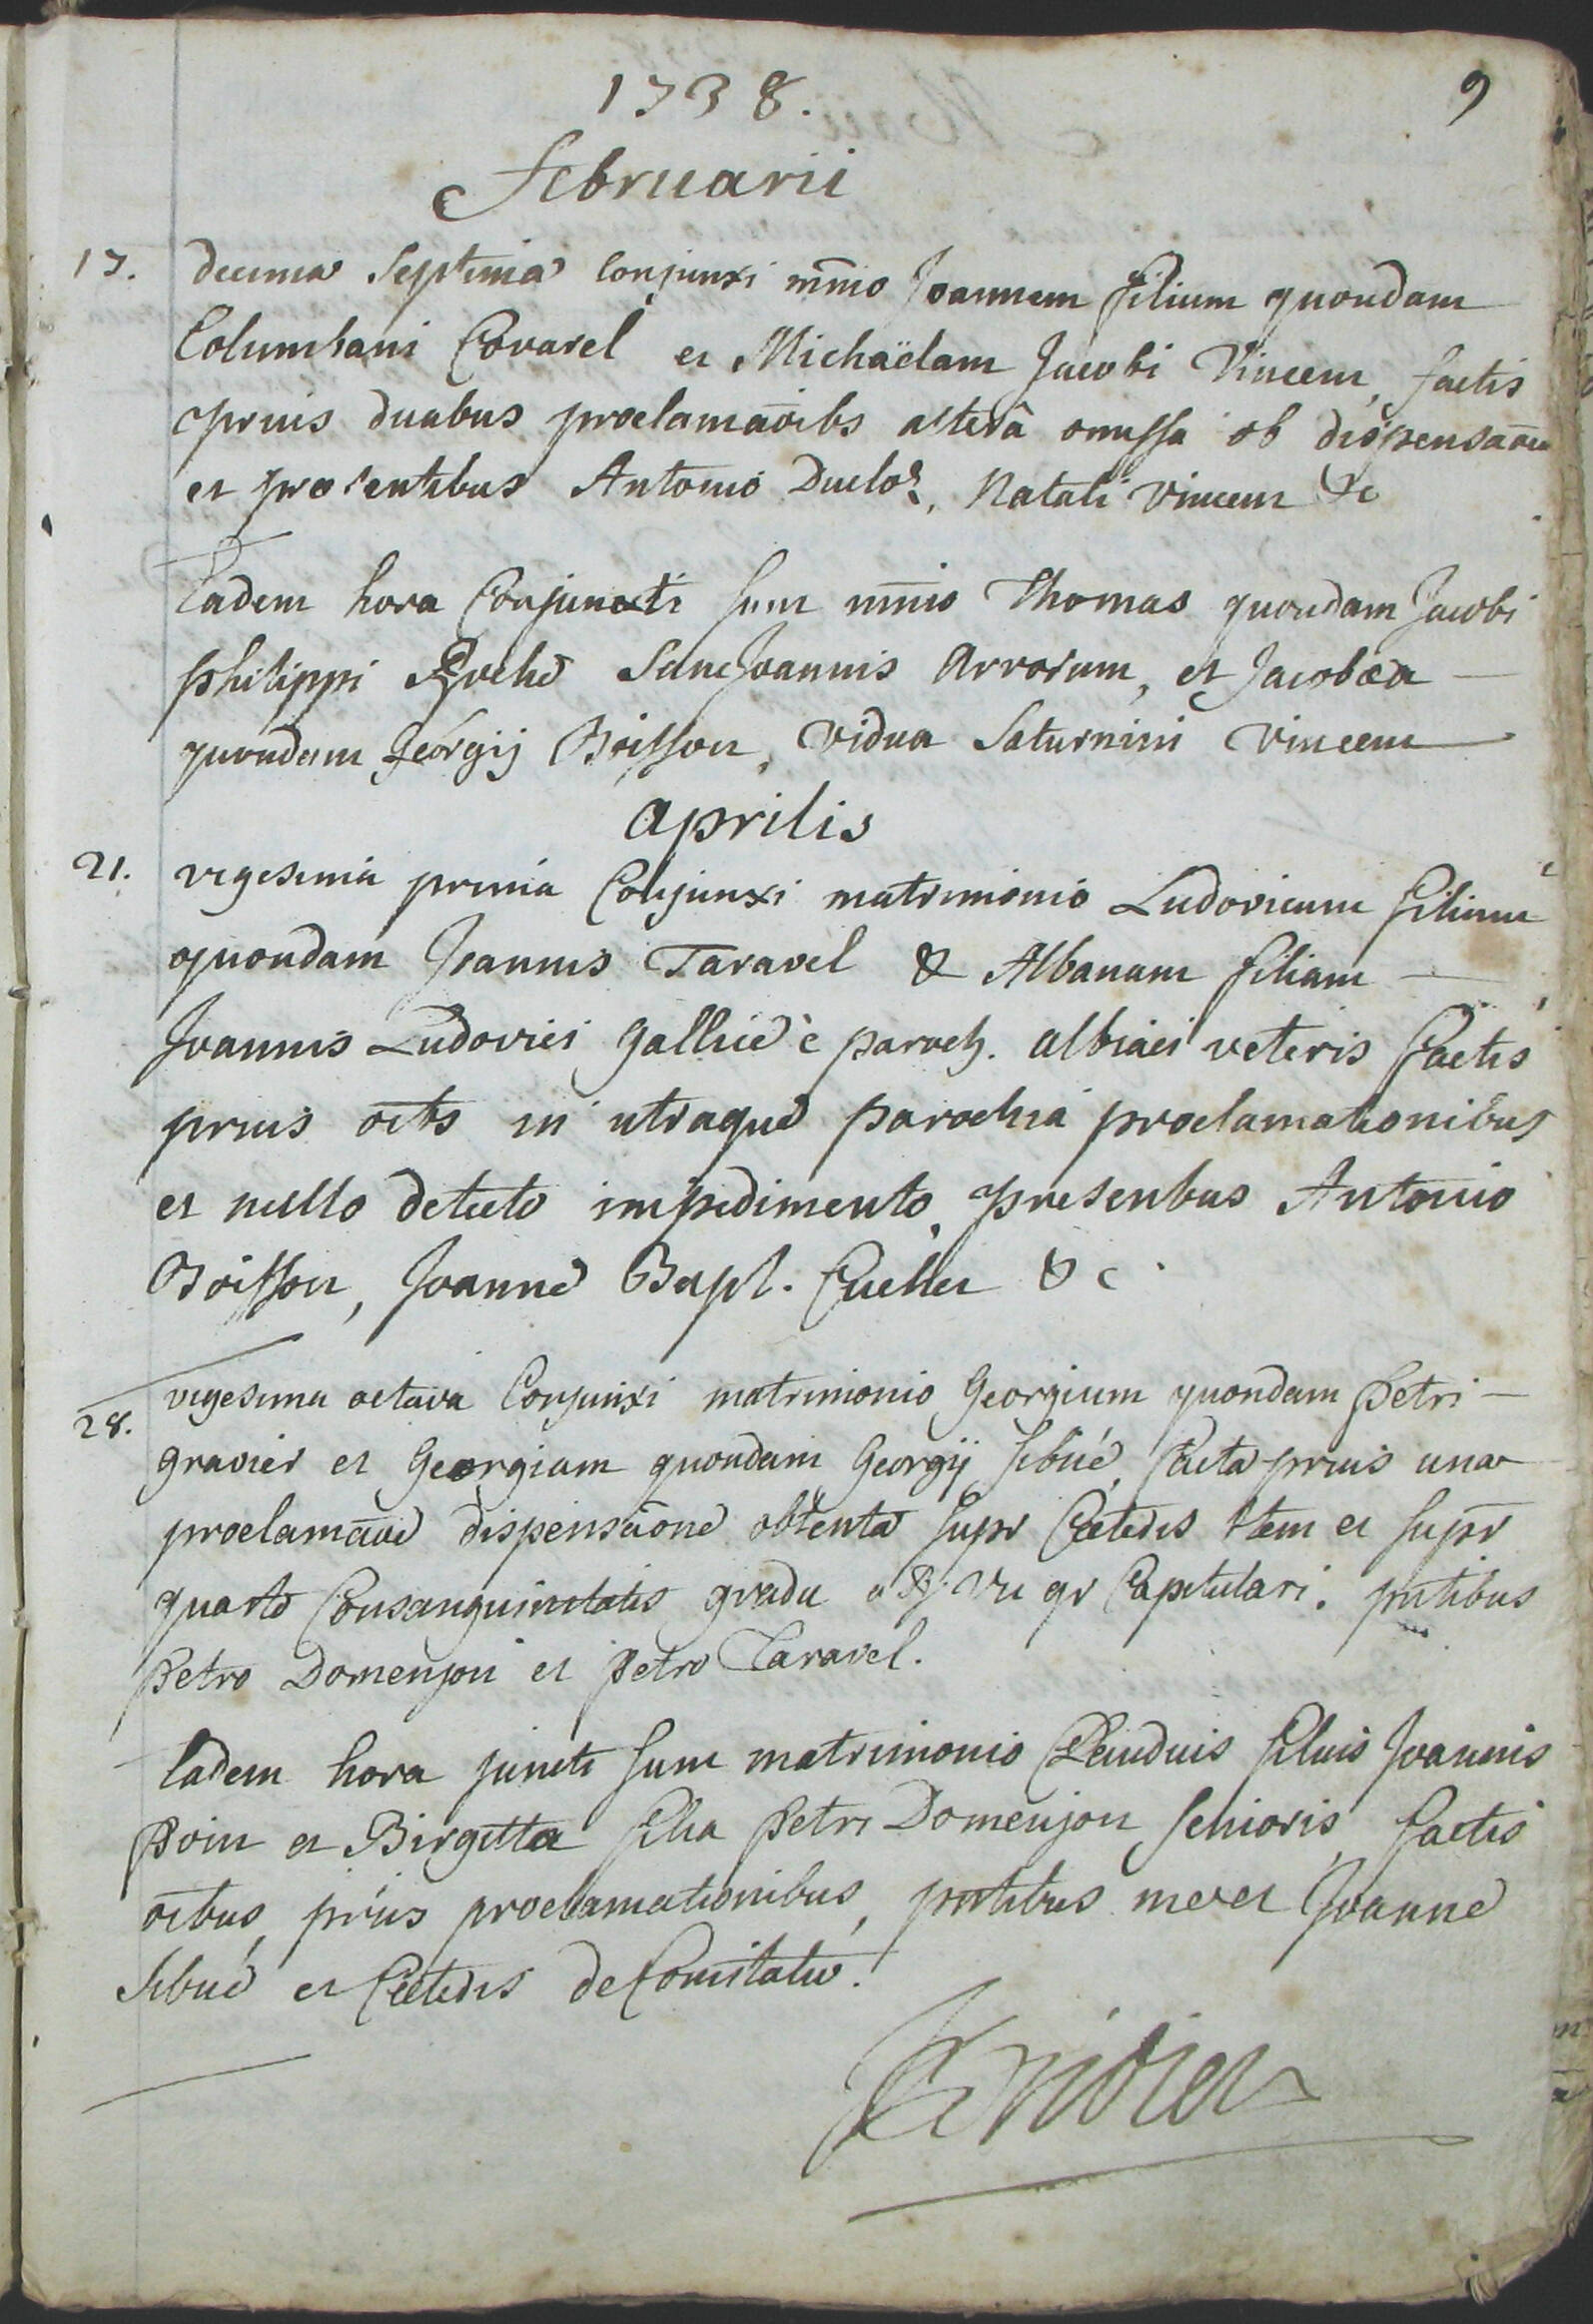 1738.
9
Februarii
17. decima Septima Conjunxi mnio Joannem filium quondam
Columbani Covarel et Michaëlam Jacobi Vincem, factis
prius duabus proclamaoibs alterâ omissa ob dispensaõem
et presentibus Antonio Duclos, Natali Vincem &c
Eadem hora Conjuncti sunt mnio Thomas quondam Jacobi
Philippi Roche Sanc Joannis Arvarum, et Jacobæa
quondam Georgij Boisson, vidua Saturnini Vincem
Aprilis
21. vigesima prima Conjunxi matrimonio Ludovicum filium
quondam Joannis Taravel & Albanam filiam
Joannis Ludovici Gallice è paroch. albiaci veteris factis
prius oibs in utraque parochia proclamationibus
et nullo detecto impedimento, presentibus Antonio
Boisson, Joanne Bapt. Cueller &c.
28. vigesima octava Conjunxi matrimonio Georgium quondam Petri
Gravier et Georgiam quondam Georgij Sibué, facta prius una
proclamaõe dispensaõne obtenta supr Cæteris item et supr
quarto Consanguinitatis gradu a Vic gr Capitulari. pntibus
Petro Domenjon et Petro Taravel.
Eadem hora juncti sunt matrimonio Claudius filius Joannis
Poin et Birgitta filia Petri Domenjon senioris, factis
oibus, prius proclamationibus, pntibus me et Joanne
Sibué et Cæteris de Comitatu.